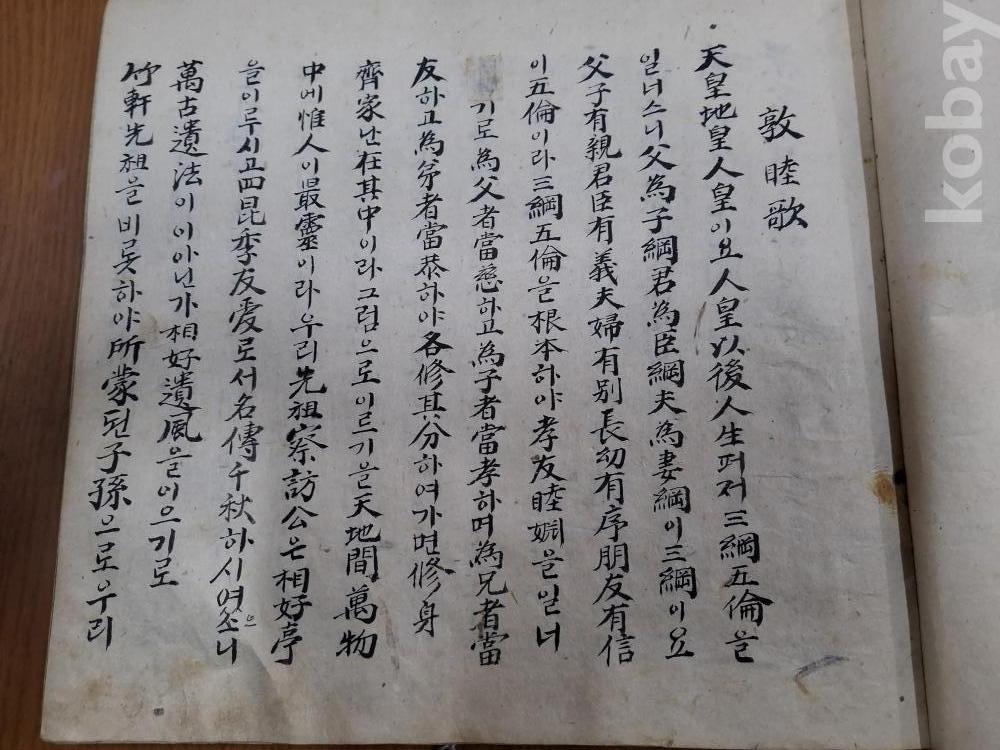 敦睦歌
天皇地皇人皇이요人皇以後人生퍼저三綱五倫을
일너스니父為子綱君為臣綱夫為妻綱이三綱이요
父子有親君臣有義夫婦有別長幼有序朋友有信
이五倫이라三綱五倫을根本하야孝友睦婣을일너
기로為父者當慈하고為子者當孝하며為兄者當
友하고為弟者當恭하야各修其分하여가면修身
齊家난在其中이라그럼으로이르기을天地間萬物
中에惟人이最靈이라우리先祖察訪公은相好亭
을이루시고四昆季友愛로서名傳千秋하시엿소니
으
萬古遺法이이아닌가相好遺風을이으기로
竹軒先祖을비롯하야所蒙된子孫으로우리
kobay